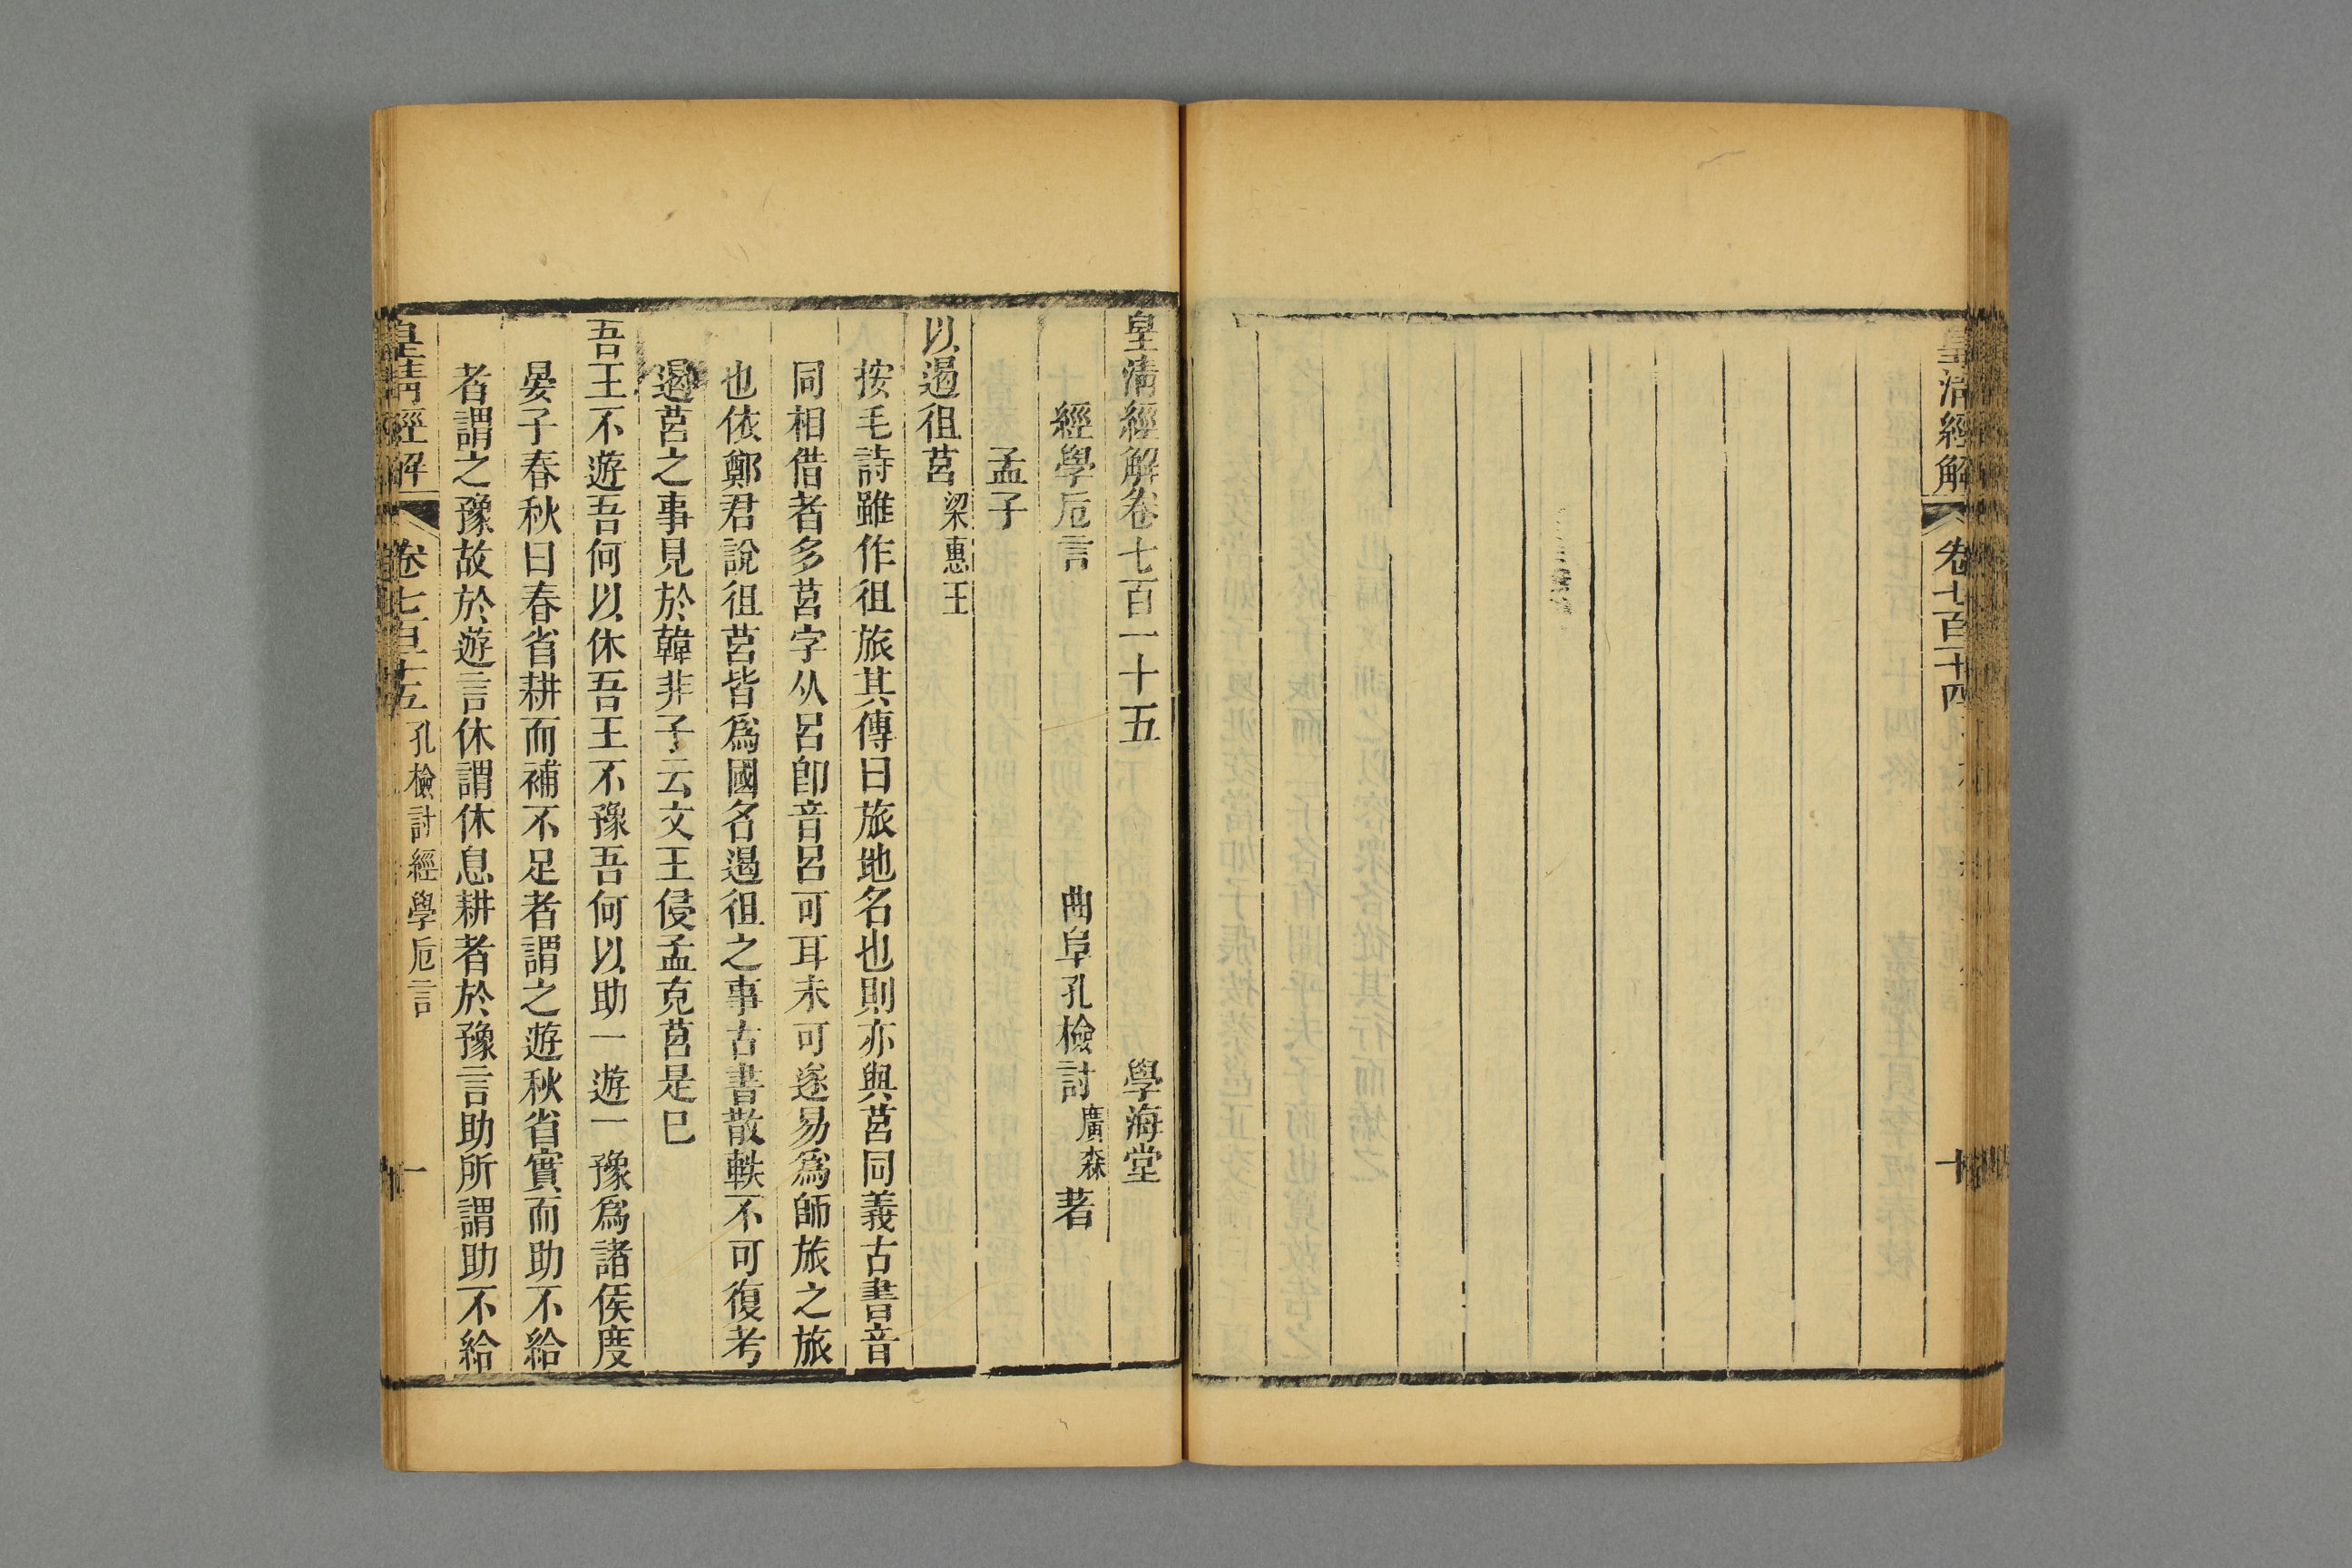 皇清經解
卷七百十四
十
皇清經解卷七百一十五
學海堂
經學卮言
曲阜孔檢討廣森著
孟子
以遏徂莒梁惠王
按毛詩雖作徂旅其傳曰旅地名也則亦與莒同義古書音
同相借者多莒字从呂卽音呂可耳未可遂易爲師旅之旅
也依鄭君說徂莒皆爲國名遏徂之事古書散軼不可復考
遏莒之事見於韓非子云文王侵孟克莒是已
吾王不遊吾何以休吾王不豫吾何以助一遊一豫爲諸侯度
晏子春秋曰春省耕而補不足者謂之遊秋省實而助不給
者謂之豫故於遊言休謂休息耕者於豫言助所謂助不給
皇清經解
卷七百十五
孔檢討經學卮言
一